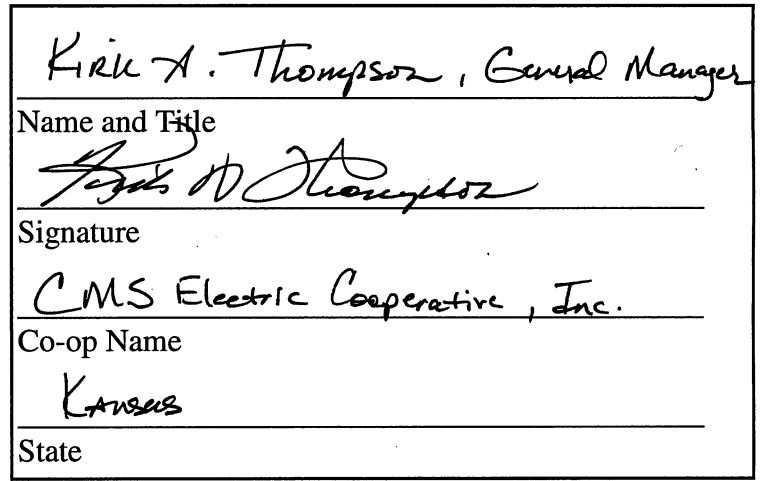 Kirk A. Thompson, General Manager
Name and Title
Kirk A Thompson
Signature
CMS Electric Cooperative, Inc.
Co-op Name
Kansas
State